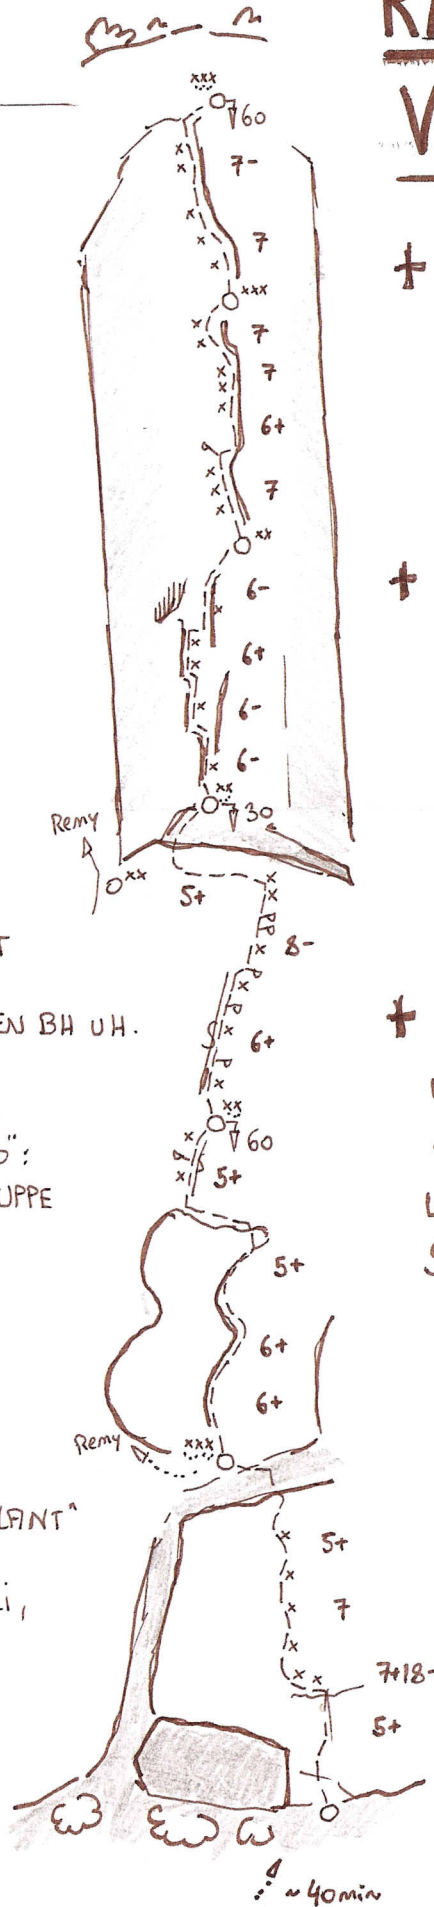 xxx
60
7-
7
xxx
7
7
6+
7
xx
6-
6+
6-
6-
xx
30
Remy
xx
5+
8-
EN BH UH.
6+
xx
60
5+
UPPE
5+
6+
6+
Remy
xxx
LANT"
5+
7
7+/8-
5+
~40min